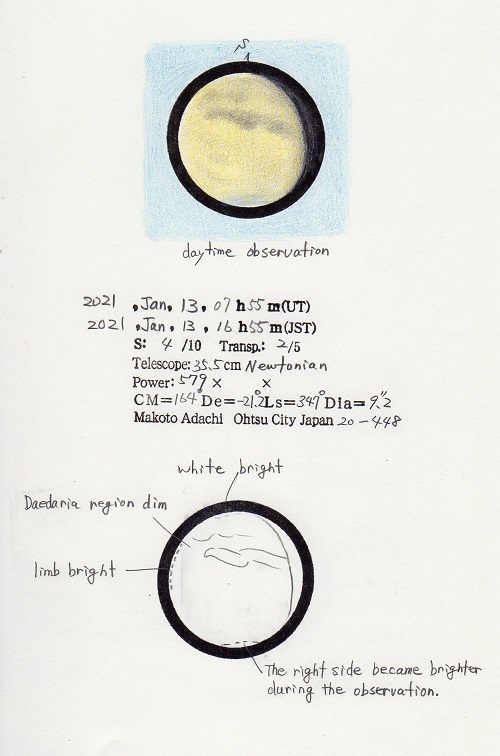 S
daytime observation
2021 , Jan, 13, 07 h 55 m (UT)
2021 , Jan, 13, 16 h 55 m (JST)
S: 4 /10 Transp.: 2/5
Telescope: 35.5 cm Newtonian
Power: 579 × ×
CM=164° De=-21.°2 Ls=349° Dia=9."2
Makoto Adachi Ohtsu City Japan 20-448
white bright
Daedaria region dim
limb bright
The right side became brighter
during the observation.